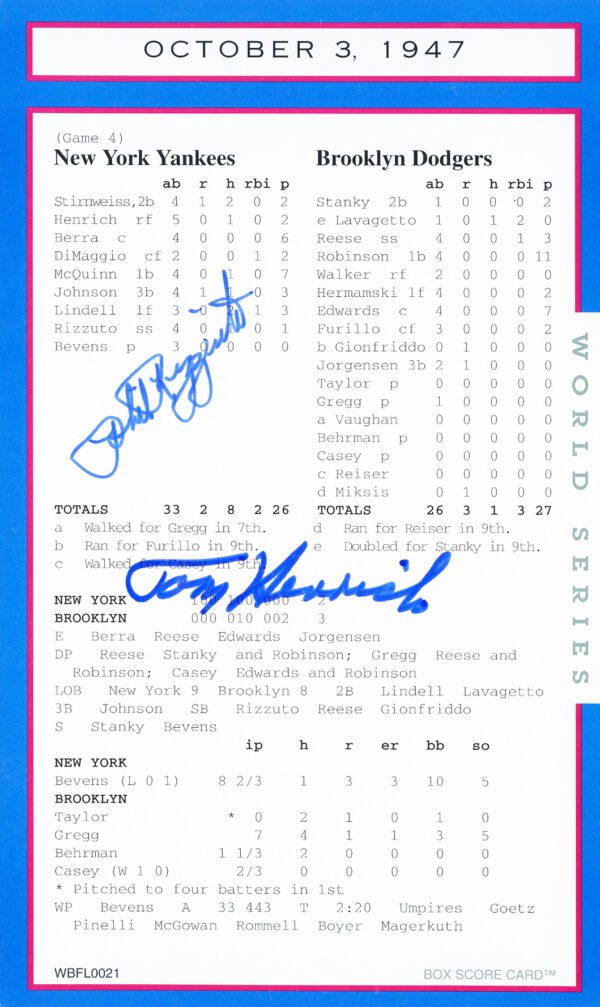 OCTOBER 3, 1947
(Game 4)
New York Yankees
ab r h rbi p
Stirnweiss,2b 4 1 2 0 2
Henrich rf 5 0 1 0 2
Berra c 4 0 0 0 6
DiMaggio cf 2 0 0 1 2
McQuinn 1b 4 0 1 0 7
Johnson 3b 4 1 1 0 3
Lindell lf 3 0 2 1 3
Rizzuto ss 4 0 1 0 1
Bevens p 3 0 0 0 0
Phil Rizzuto
Brooklyn Dodgers
ab r h rbi p
Stanky 2b 1 0 0 0 2
e Lavagetto 1 0 1 2 0
Reese ss 4 0 0 1 3
Robinson 1b 4 0 0 0 11
Walker rf 2 0 0 0 0
Hermamski lf 4 0 0 0 2
Edwards c 4 0 0 0 7
Furillo cf 3 0 0 0 2
b Gionfriddo 0 1 0 0 0
Jorgensen 3b 2 1 0 0 0
Taylor p 0 0 0 0 0
Gregg p 1 0 0 0 0
a Vaughan 0 0 0 0 0
Behrman p 0 0 0 0 0
Casey p 0 0 0 0 0
c Reiser 0 0 0 0 0
d Miksis 0 1 0 0 0
TOTALS 33 2 8 2 26
TOTALS 26 3 1 3 27
a Walked for Gregg in 7th.
b Ran for Furillo in 9th.
c Walked for Casey in 9th.
d Ran for Reiser in 9th.
e Doubled for Stanky in 9th.
Tom Henrich
NEW YORK 100 100 000 2
BROOKLYN 000 010 002 3
E Berra Reese Edwards Jorgensen
DP Reese Stanky and Robinson; Gregg Reese and
Robinson; Casey Edwards and Robinson
LOB New York 9 Brooklyn 8 2B Lindell Lavagetto
3B Johnson SB Rizzuto Reese Gionfriddo
S Stanky Bevens
ip h r er bb so
NEW YORK
Bevens (L 0 1) 8 2/3 1 3 3 10 5
BROOKLYN
Taylor * 0 2 1 0 1 0
Gregg 7 4 1 1 3 5
Behrman 1 1/3 2 0 0 0 0
Casey (W 1 0) 2/3 0 0 0 0 0
* Pitched to four batters in 1st
WP Bevens A 33 443 T 2:20 Umpires Goetz
Pinelli McGowan Rommell Boyer Magerkuth
WBFL0021
BOX SCORE CARD™
WORLD SERIES